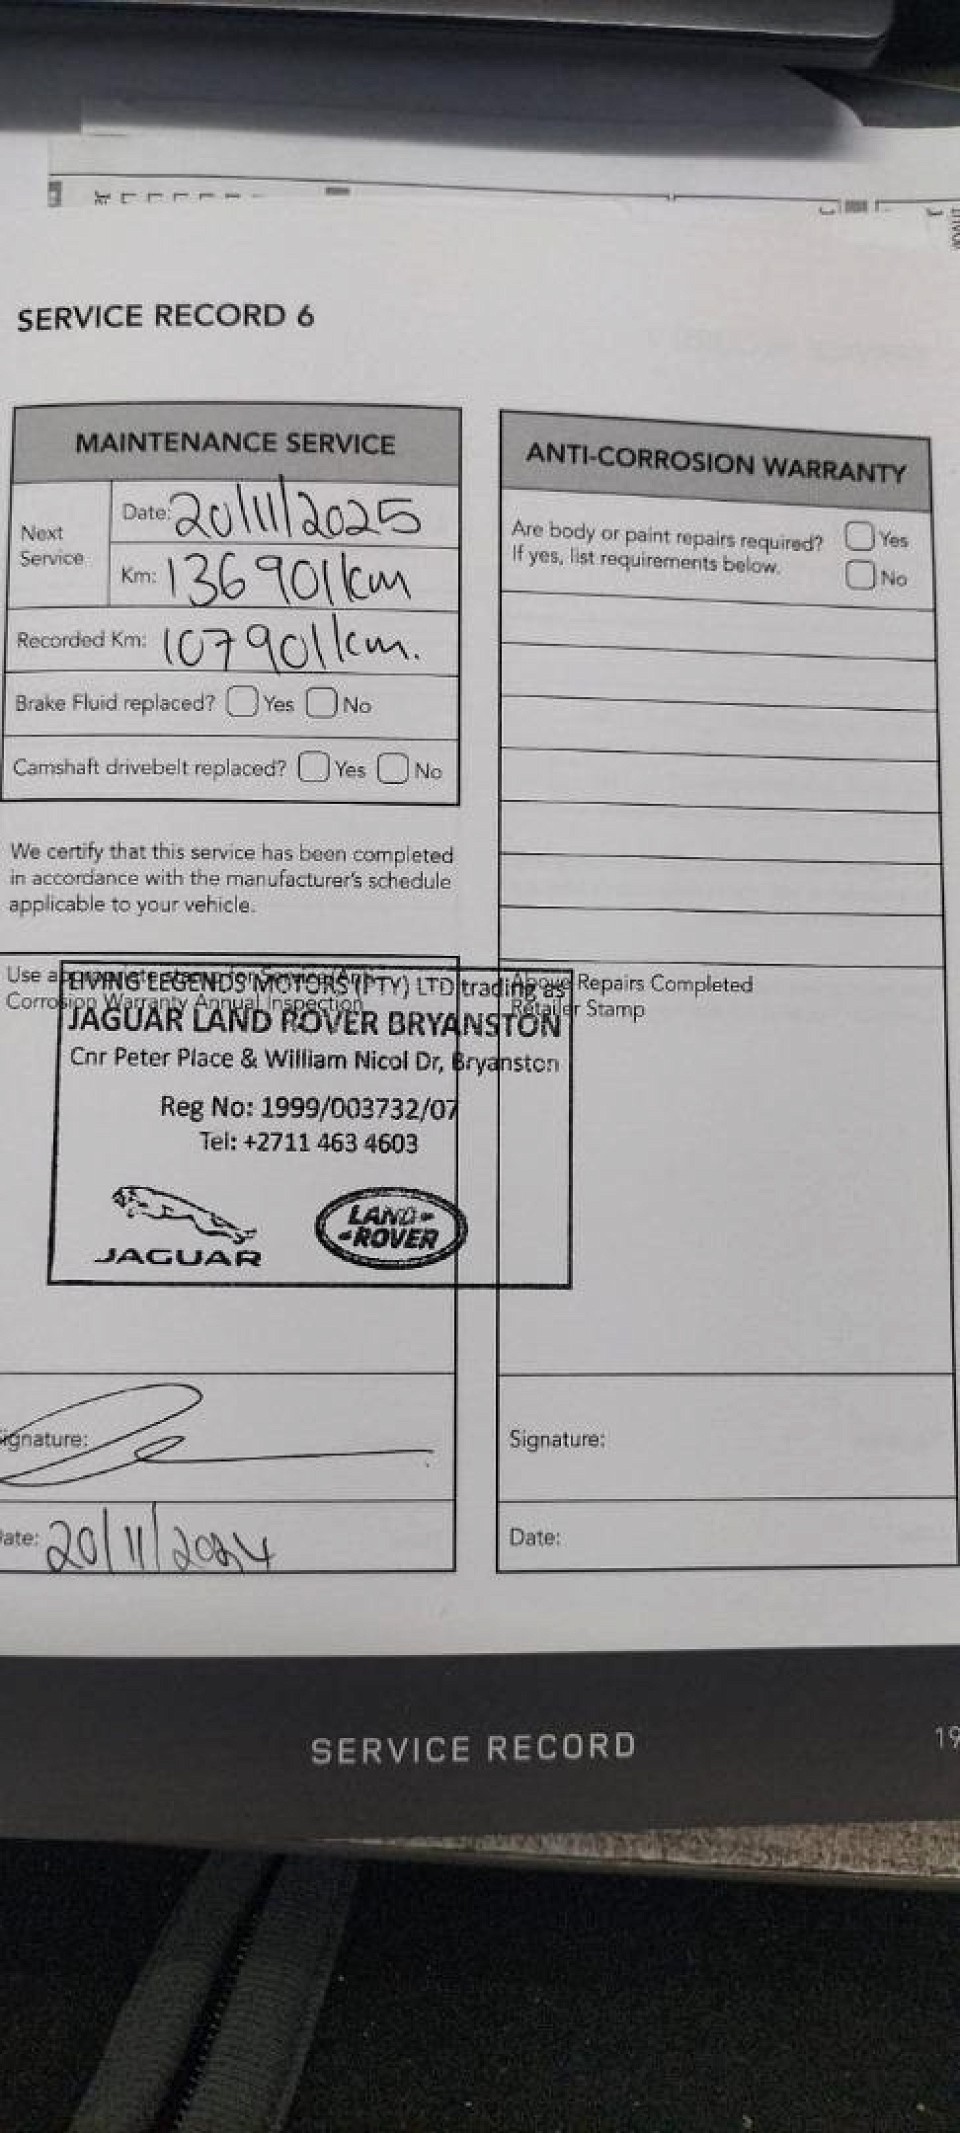 SERVICE RECORD 6
MAINTENANCE SERVICE
Next Service
Date: 20/11/2025
Km: 136 901km
Recorded Km: 107 901km.
Brake Fluid replaced? Yes No
Camshaft drivebelt replaced? Yes No
We certify that this service has been completed
in accordance with the manufacturer's schedule
applicable to your vehicle.
Use appropriate stamp for Service/Anti-
Corrosion Warranty Annual Inspection
LIVING LEGENDS MOTORS (PTY) LTD trading as
JAGUAR LAND ROVER BRYANSTON
Cnr Peter Place & William Nicol Dr, Bryanston
Reg No: 1999/003732/07
Tel: +2711 463 4603
JAGUAR
LAND-
-ROVER
ignature:
ate: 20/11/2024
ANTI-CORROSION WARRANTY
Are body or paint repairs required? Yes
If yes, list requirements below. No
Above Repairs Completed
Retailer Stamp
Signature:
Date:
SERVICE RECORD
19